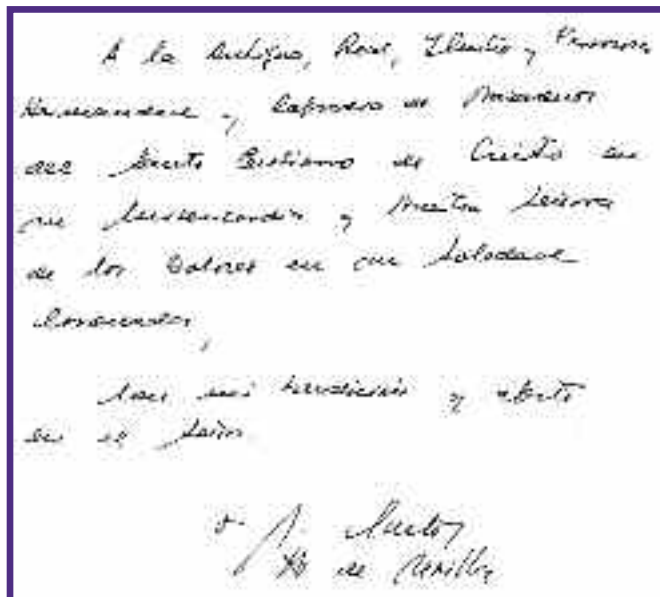 A la Antigua, Real, Ilustre y Fervorosa
Hermandad y Cofradía de Nazarenos
del Santo Cristiano de Cristo en
su y Nuestra Señora
de los Dolores en su Soledad
Coronada,
con mi bendición y afecto
en el Señor.
+ J.
Ab de Sevilla